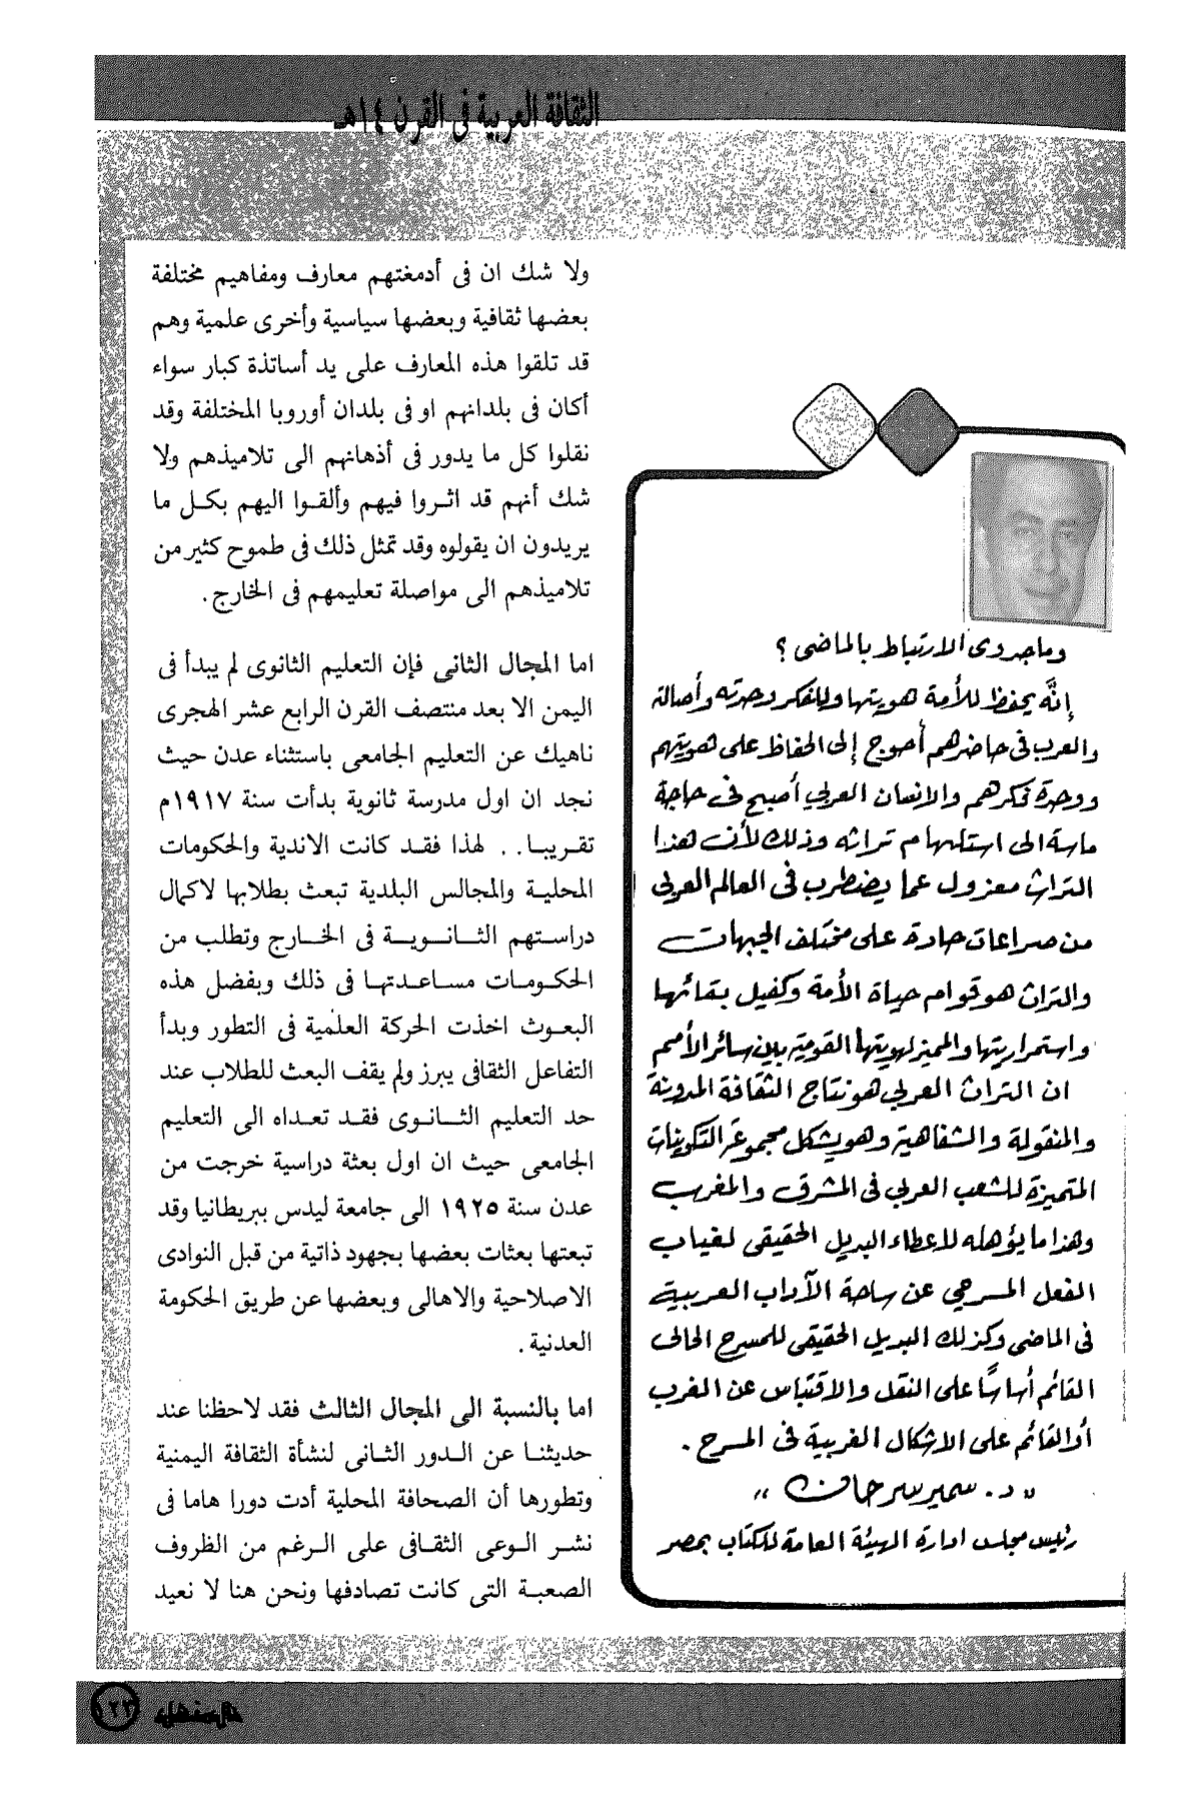 الثقافة العربية فى القرن ١٤هـ
وما جدوى الارتباط بالماضى ؟
إنَّه يحفظ للأمة هويتها وللفكر وحدته وأصالة
والعرب فى حاضرهم أحوج إلى الحفاظ على هويتهم
ووحدة فكرهم والانسان العربى أصبح فى حاجة
ماسة الى استلهام تراثه وذلك لأن هذا
التراث معزول عما يضطرب فى العالم العربى
من صراعات حادة على مختلف الجبهات
والتراث هو قوام حياة الأمة وكفيل بقائها
واستمراريتها والمميز لهويتها القومية بين سائر الأمم
ان التراث العربى هو نتاج الثقافة المدونة
والمنقولة والشفاهية وهو يشكل مجموعة التكوينات
المتميزة للشعب العربى فى المشرق والمغرب
وهذا ما يؤهله لاعطاء البديل الحقيقى لغياب
الفعل المسرحى عن ساحة الآداب العربية
فى الماضى وكذلك البديل الحقيقى للمسرح الحالى
القائم أساسًا على النقل والاقتباس عن الغرب
أو القائم على الاشكال الغربية فى المسرح .
« د. سمير سرحان »
رئيس مجلس ادارة الهيئة العامة للكتاب بمصر
ولا شك ان فى أدمغتهم معارف ومفاهيم مختلفة
بعضها ثقافية وبعضها سياسية وأخرى علمية وهم
قد تلقوا هذه المعارف على يد أساتذة كبار سواء
أكان فى بلدانهم او فى بلدان أوروبا المختلفة وقد
نقلوا كل ما يدور فى أذهانهم الى تلاميذهم ولا
شك أنهم قد اثروا فيهم وألقوا اليهم بكل ما
يريدون ان يقولوه وقد تمثل ذلك فى طموح كثير من
تلاميذهم الى مواصلة تعليمهم فى الخارج .
اما المجال الثانى فإن التعليم الثانوى لم يبدأ فى
اليمن الا بعد منتصف القرن الرابع عشر الهجرى
ناهيك عن التعليم الجامعى باستثناء عدن حيث
نجد ان اول مدرسة ثانوية بدأت سنة ١٩١٧م
تقريبا . . لهذا فقد كانت الاندية والحكومات
المحلية والمجالس البلدية تبعث بطلابها لاكمال
دراستهم الثانوية فى الخارج وتطلب من
الحكومات مساعدتها فى ذلك وبفضل هذه
البعوث اخذت الحركة العلمية فى التطور وبدأ
التفاعل الثقافى يبرز ولم يقف البعث للطلاب عند
حد التعليم الثانوى فقد تعداه الى التعليم
الجامعى حيث ان اول بعثة دراسية خرجت من
عدن سنة ١٩٢٥ الى جامعة ليدس ببريطانيا وقد
تبعتها بعثات بعضها بجهود ذاتية من قبل النوادى
الاصلاحية والاهالى وبعضها عن طريق الحكومة
العدنية .
اما بالنسبة الى المجال الثالث فقد لاحظنا عند
حديثنا عن الدور الثانى لنشأة الثقافة اليمنية
وتطورها أن الصحافة المحلية أدت دورا هاما فى
نشر الوعى الثقافى على الرغم من الظروف
الصعبة التى كانت تصادفها ونحن هنا لا نعيد
المنهل ١٢٣